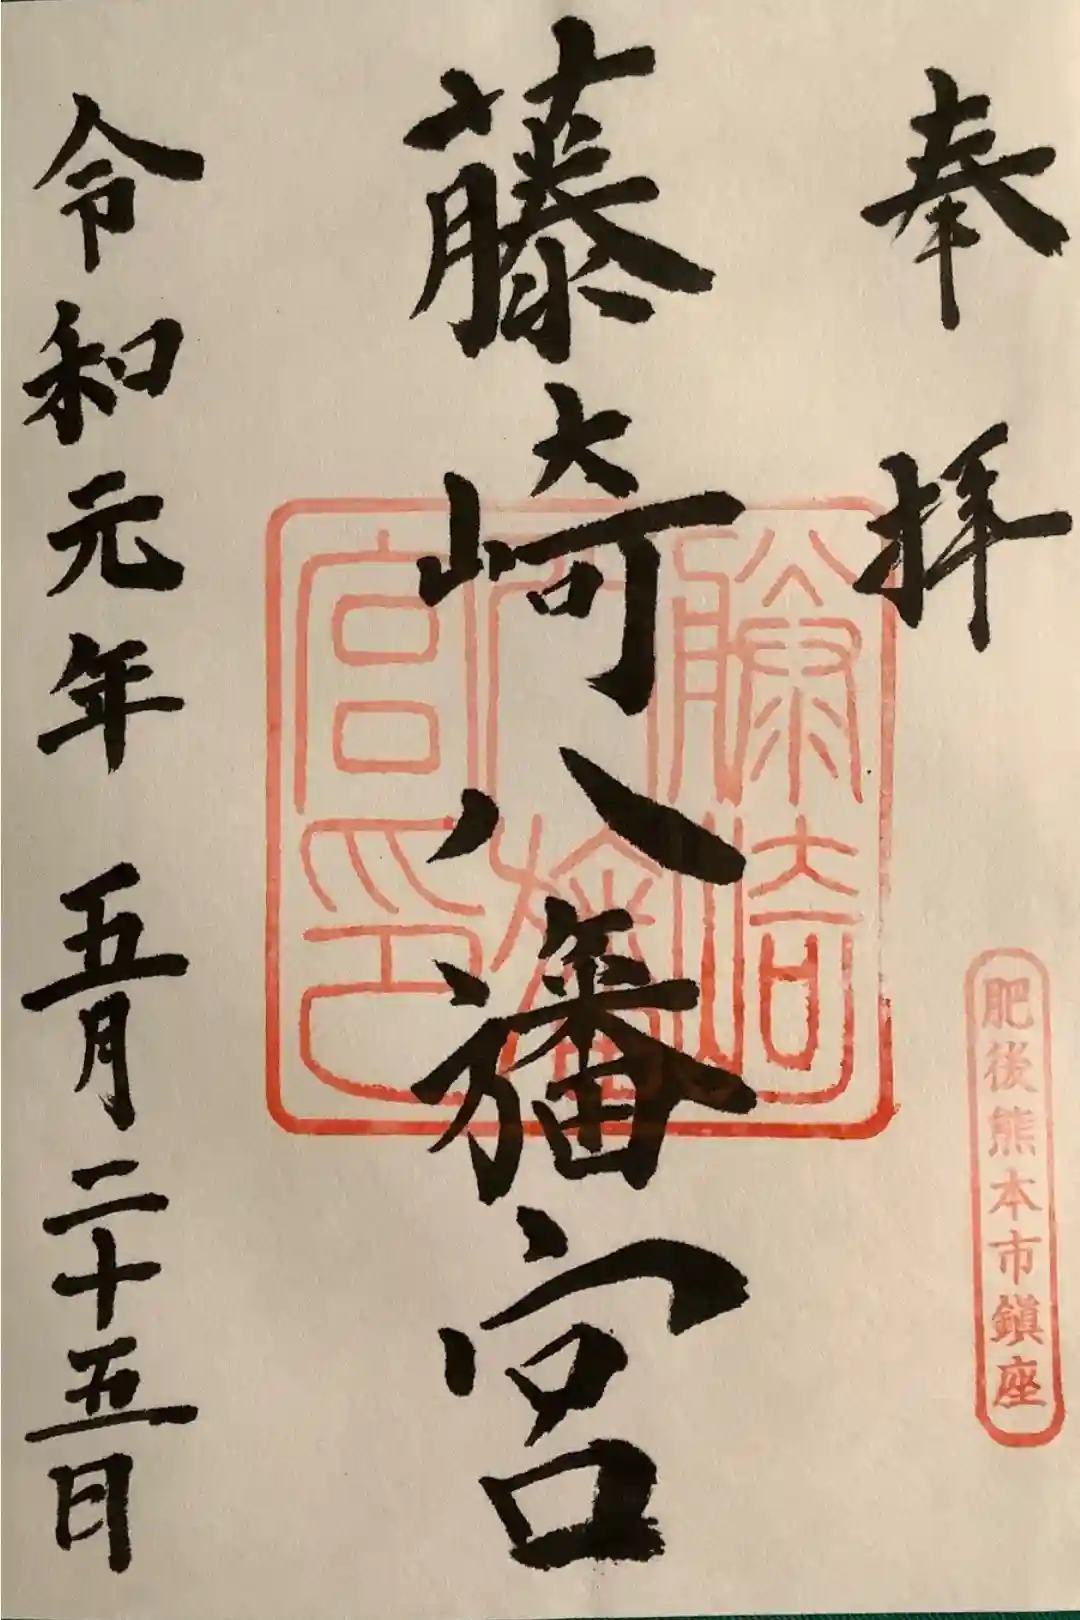 奉拝
肥後熊本市鎭座
藤崎八旛宮
藤崎
八旛
宮印
令和元年五月二十五日